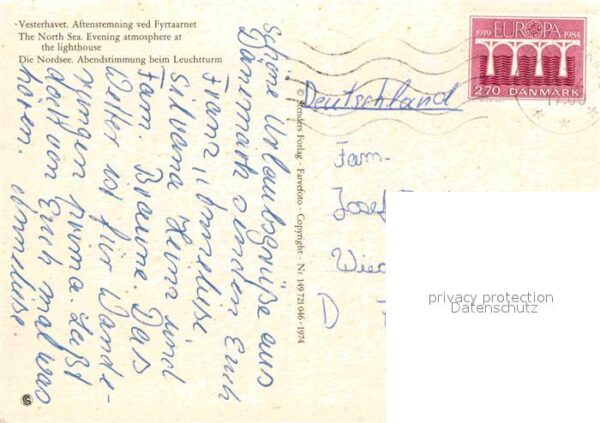 Vesterhavet. Aftenstemning ved Fyrtaarnet
The North Sea. Evening atmosphere at
the lighthouse
Die Nordsee. Abendstimmung beim Leuchtturm
schöne Urlaubsgrüße aus
Dänemark senden Euch
Franz, Anneliese
Silvana Heim und
Fam. Braune. Das
Wetter ist für Wande-
rungen prima. Laßt
doch von Euch mal was
hören.
Anneliese
Forlag - Farvefoto - Copyright - Nr. 149 721 046 - 1974
1959 EUROPA 1984
2.70 DANMARK
Deutschland
Fam.
Josef
D
privacy protection
Datenschutz